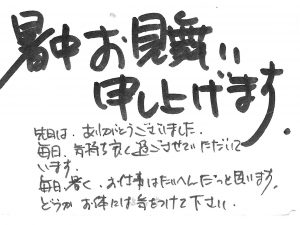 暑中お見舞い
申し上げます.
先日は、ありがとうございました.
毎日、気持ち良く過ごさせていただいて
います.
毎日暑く、お仕事はたいへんだっと思います.
どうか お体には気をつけて下さい.